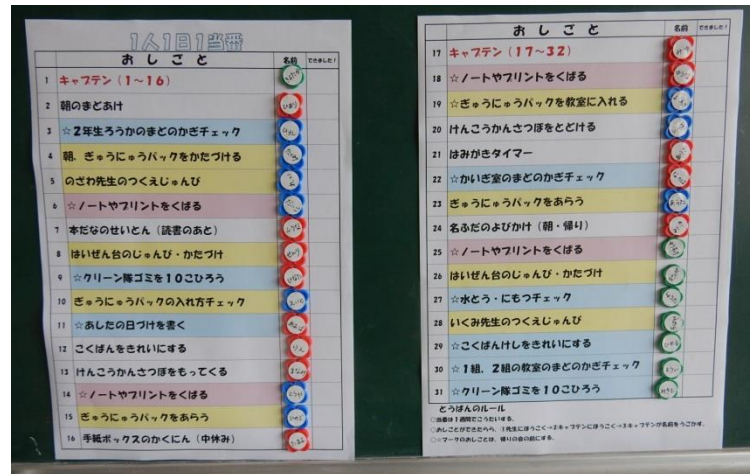 1人1日1当番
おしごと 名前 できました！
1 キャプテン（1～16）
2 朝のまどあけ
3 ☆2年生ろうかのまどのかぎチェック
4 朝、ぎゅうにゅうパックをかたづける
5 のざわ先生のつくえじゅんび
6 ☆ノートやプリントをくばる
7 本だなのせいとん（読書のあと）
8 はいぜん台のじゅんび・かたづけ
9 ☆クリーン隊ゴミを10こひろう
10 ぎゅうにゅうパックの入れ方チェック
11 ☆あしたの日づけを書く
12 こくばんをきれいにする
13 けんこうかんさつぼをもってくる
14 ☆ノートやプリントをくばる
15 ぎゅうにゅうパックをあらう
16 手紙ボックスのかくにん（中休み）
おしごと 名前 できました！
17 キャプテン（17～32）
18 ☆ノートやプリントをくばる
19 ☆ぎゅうにゅうパックを教室に入れる
20 けんこうかんさつぼをとどける
21 はみがきタイマー
22 ☆かいぎ室のまどのかぎチェック
23 ぎゅうにゅうパックをあらう
24 名ふだのよびかけ（朝・帰り）
25 ☆ノートやプリントをくばる
26 はいぜん台のじゅんび・かたづけ
27 ☆水とう・にもつチェック
28 いくみ先生のつくえじゅんび
29 ☆こくばんけしをきれいにする
30 ☆1組、2組の教室のまどのかぎチェック
31 ☆クリーン隊ゴミを10こひろう
とうばんのルール
○当番は1週間でこうたいする。
○おしごとができたら、1先生にほうこく→2キャプテンにほうこく→3キャプテンが名前をうごかす。
○☆マークのおしごとは、帰りの会の前にする。